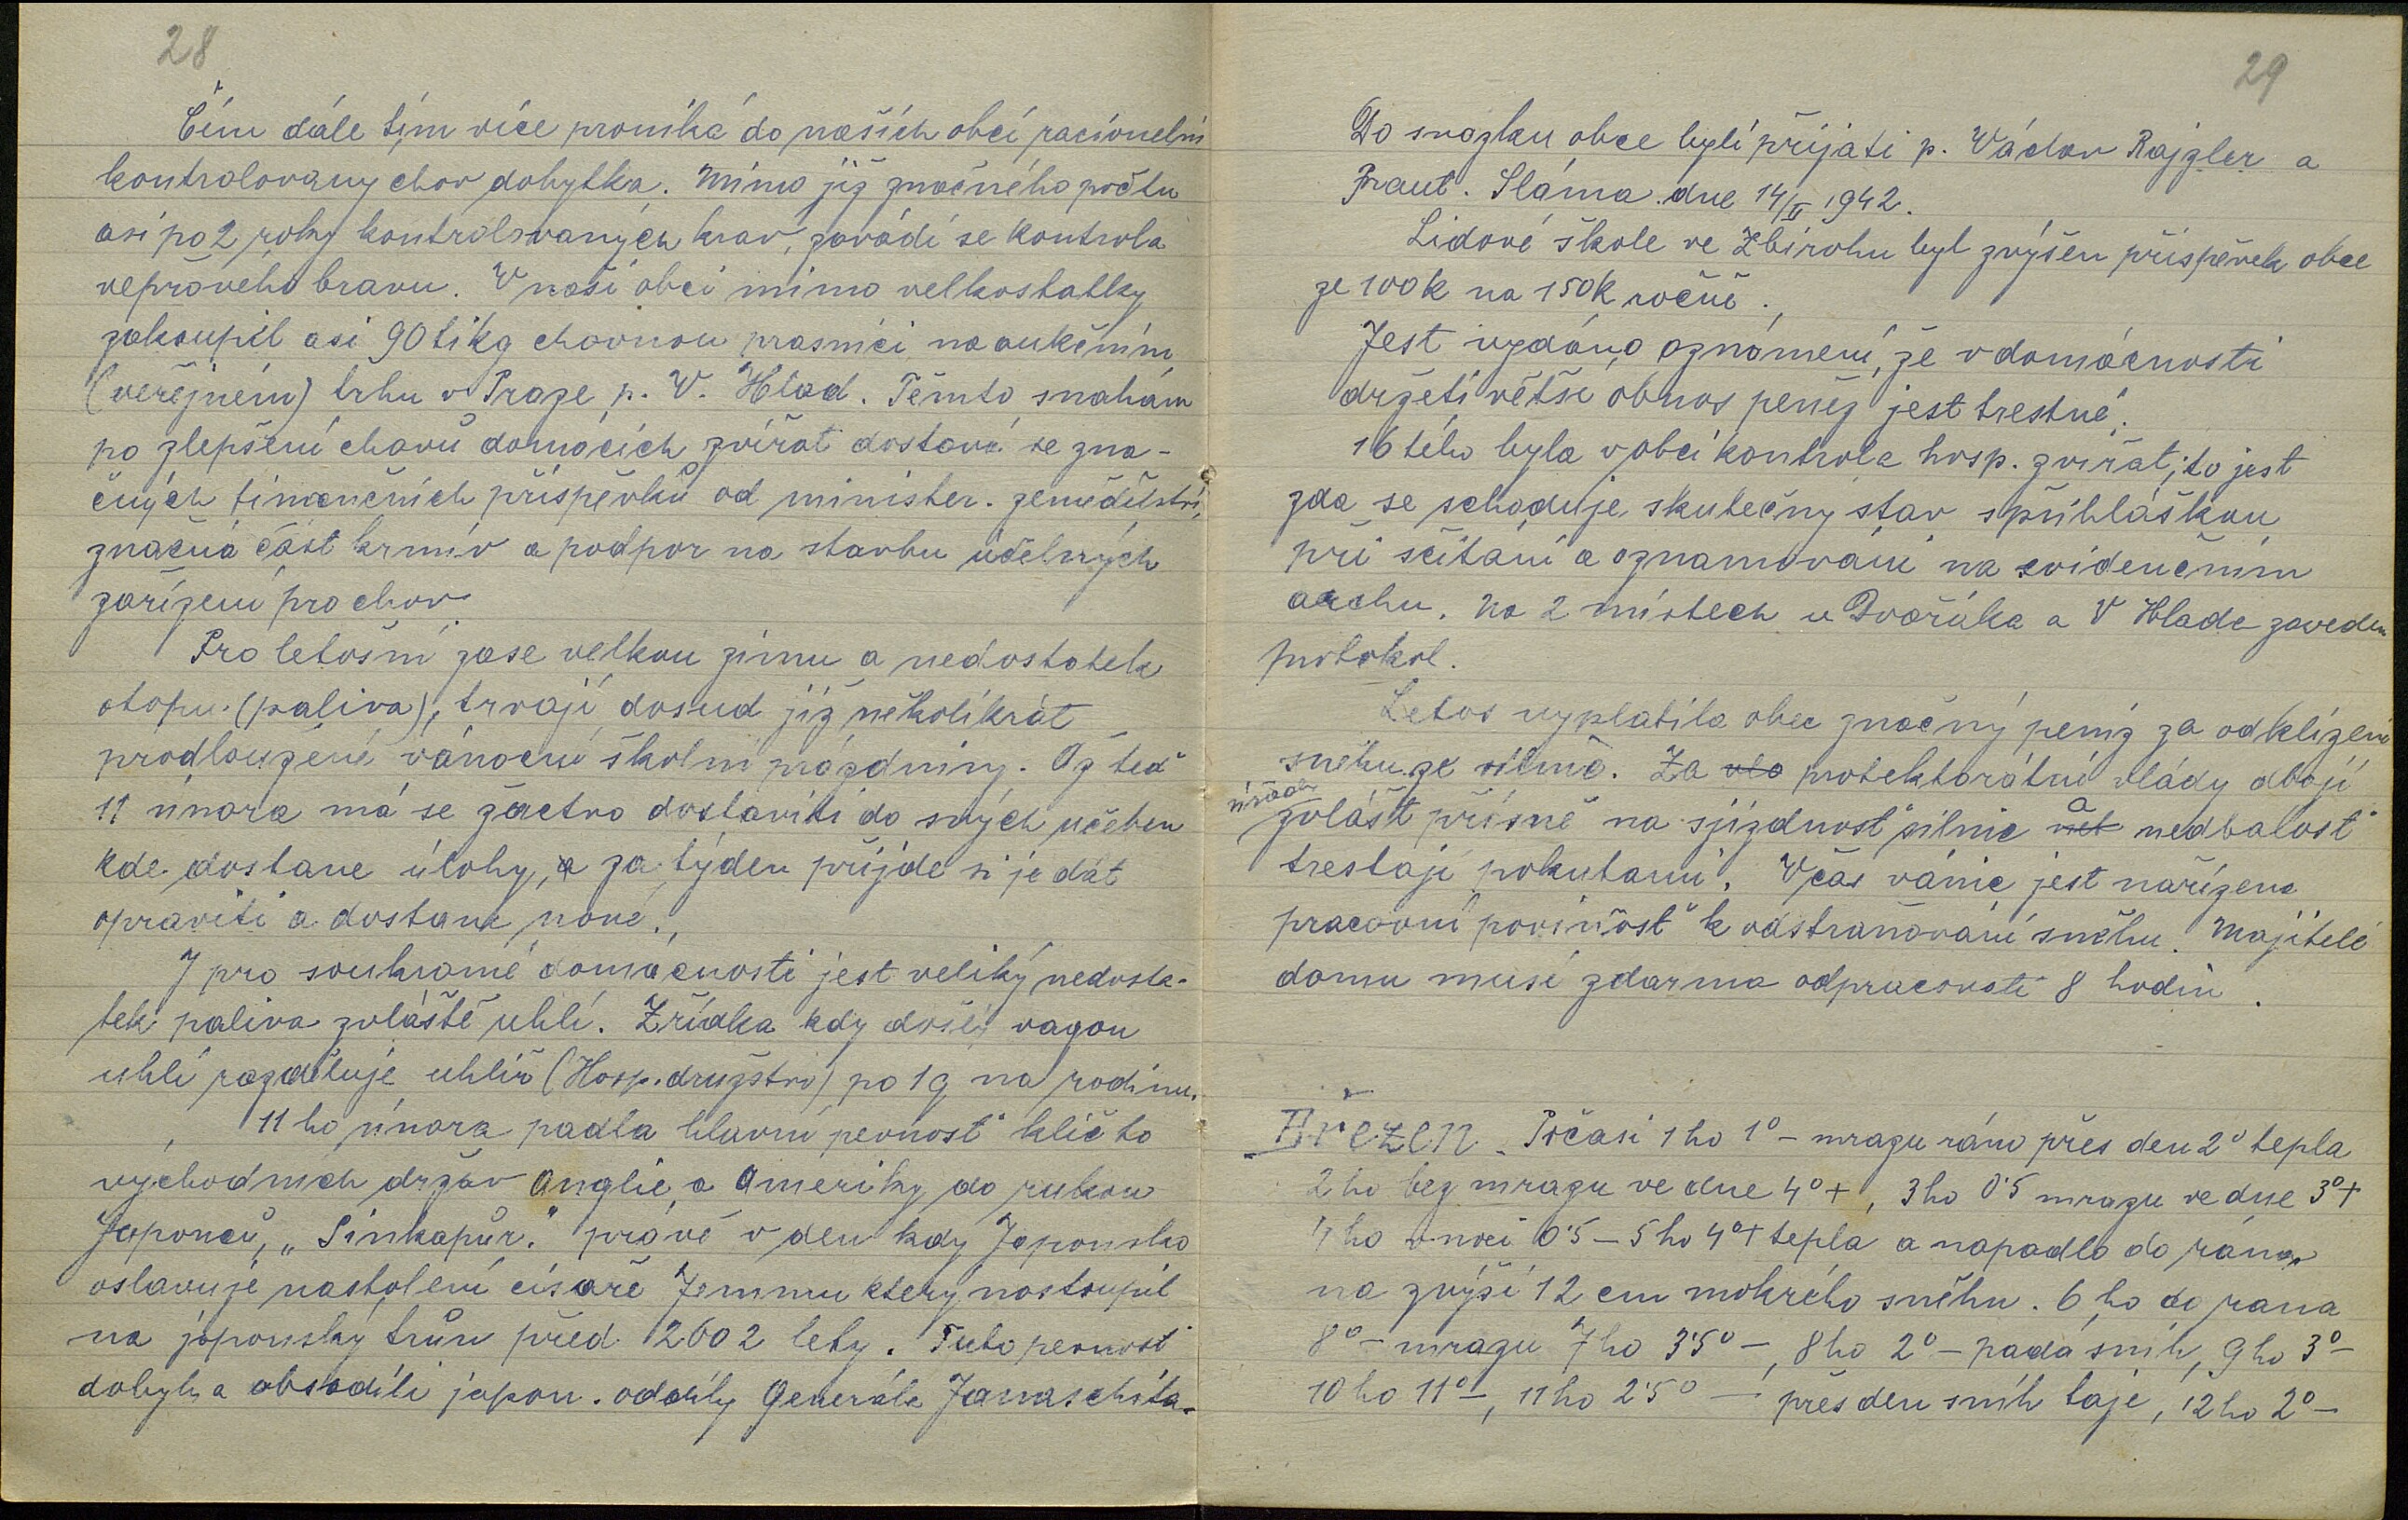 28
Čím dále tím více proniká do našich obcí racionelní
kontrolovaný chov dobytka. Mimo již značného počtu
asi po 2 roky kontrolovaných krav, zavádí se kontrola
vepřového bravu. V naší obci mimo velkostatky
zakoupil asi 90 ti kg chovnou prasnici na aukčním
(veřejném) trhu v Praze p. V. Hlad. Těmto snahám
po zlepšení chovů domácích zvířat dostává se zna-
čných finančních příspěvků od minister. zemědělství,
značná část krmiv a podpor na stavbu účelných
zařízení pro chov.
Pro letošní zase velkou zimu a nedostatek
otopu (paliva), trvají dosud již několikrát
prodloužené vánoční školní prázdniny. Až teď
11 února má se žactvo dostaviti do svých učeben
kde dostane úlohy, a za týden přijde si je dát
opraviti a dostane nové.
I pro soukromé domácnosti jest veliký nedosta-
tek paliva zvláště uhlí. Zřídka kdy došlý vagon
uhlí rozděluje uhlíř (Hosp. družstvo) po 1 q na rodinu.
11 ho února padla hlavní pevnost klíč to
východních držav Anglie a Ameriky do rukou
Japonců, „Sinkapůr." právě v den kdy Japonsko
oslavuje nastolení císaře Jemmu který nastoupil
na japonský trůn před 2602 lety. Tuto pevnost
dobyly a obsadili japon. oddíly Generála Jamaschita.
29
Do svazku obce byli přijati p. Václav Rajzler a
Frant. Sláma dne 14/II 1942.
Lidové škole ve Zbirohu byl zvýšen příspěvek obce
ze 100 K na 150 K ročně.
Jest vydáno oznámení, že v domácnosti
držeti větší obnos peněz jest trestné.
16 tého byla v obci kontrola hosp. zvířat, to jest
zda se schoduje skutečný stav s přihláškou
při sčítání a oznamování na evidenčním
archu. Na 2 místech u Dvořáka a V Hlada zaveden
protokol.
Letos vyplatila obec značný peníz za odklízení
sněhu ze silnic. Za vlo protektorátní vlády dbají
úřady zvlášť přísně na sjízdnost silnic net a nedbalost
trestají pokutami. V čas vánic jest nařízena
pracovní povinost k odstraňování sněhu. Majitelé
domu musí zdarma odpracovati 8 hodin.
Březen. Počasí 1 ho 1° – mrazu ráno přes den 2° tepla
2 ho bez mrazu ve dne 4° +, 3 ho 0˙5 mrazu ve dne 3° +
4 ho v noci 0˙5 – 5 ho 4° + tepla a napadlo do rána
na zvýší 12 cm mokrého sněhu. 6 ho do rana
8° – mrazu 7 ho 3˙5° –, 8 ho 2° – padá sníh, 9 ho 3° –
10 ho 11° –, 11 ho 2˙5° – přes den sníh taje, 12 ho 2° –